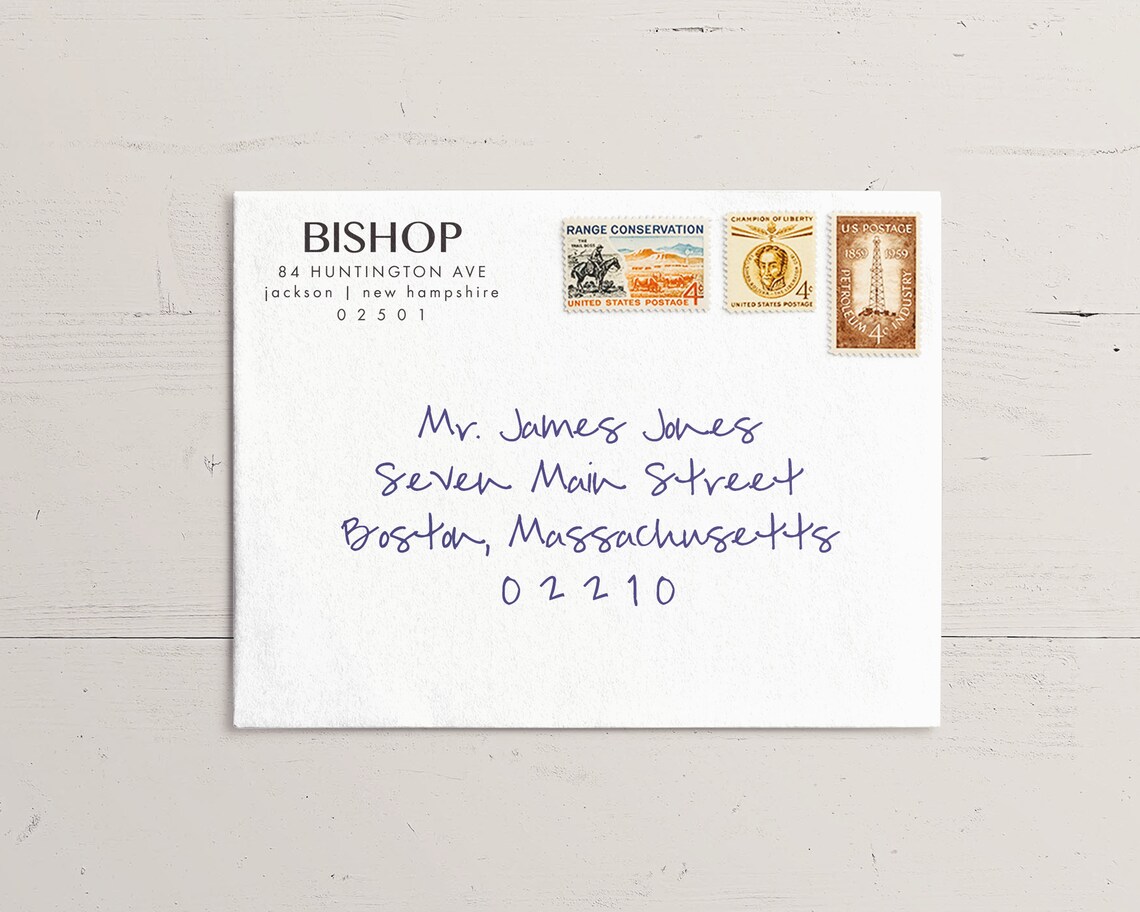 BISHOP
84 HUNTINGTON AVE
jackson | new hampshire
02501
RANGE CONSERVATION
THE TRAIL BOSS
4c
UNITED STATES POSTAGE
CHAMPION OF LIBERTY
4c
UNITED STATES POSTAGE
U.S. POSTAGE
1859 1959
PETROLEUM INDUSTRY
4c
Mr. James Jones
Seven Main Street
Boston, Massachusetts
02210